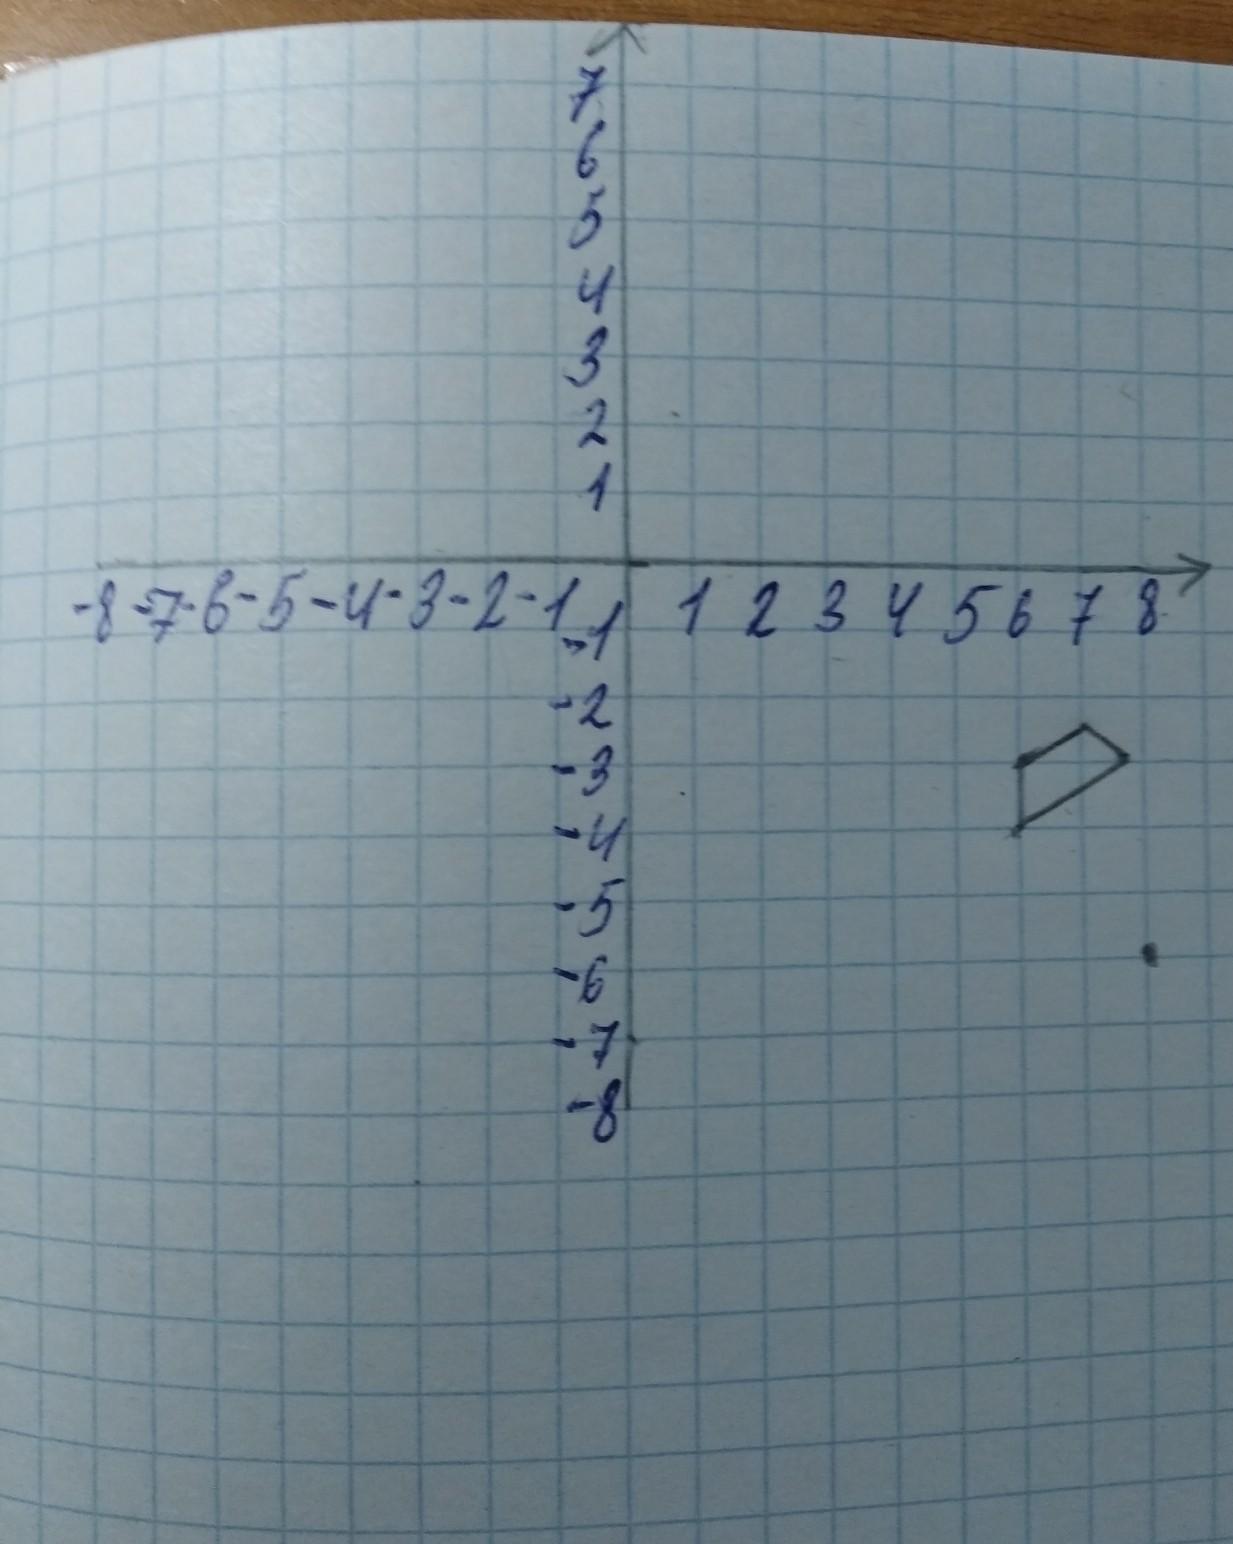 7
6
5
4
3
2
1
-8 -7 -6 -5 -4 -3 -2 -1 1 2 3 4 5 6 7 8
-1
-2
-3
-4
-5
-6
-7
-8